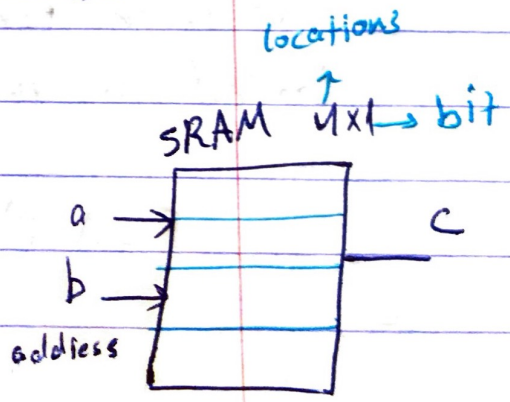 locations
SRAM 4x1 → bit
a
c
b
address